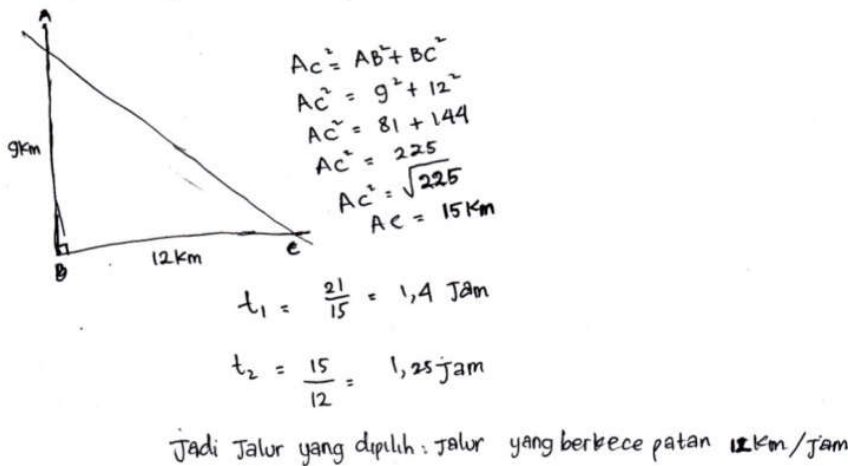 A
9km
B
12km
C
AC² = AB² + BC²
AC² = 9² + 12²
AC² = 81 + 144
AC² = 225
AC² = √225
AC = 15 Km
t₁ = 21/15 = 1,4 Jam
t₂ = 15/12 = 1,25 jam
Jadi Jalur yang dipilih : Jalur yang berkece patan 12 km/jam